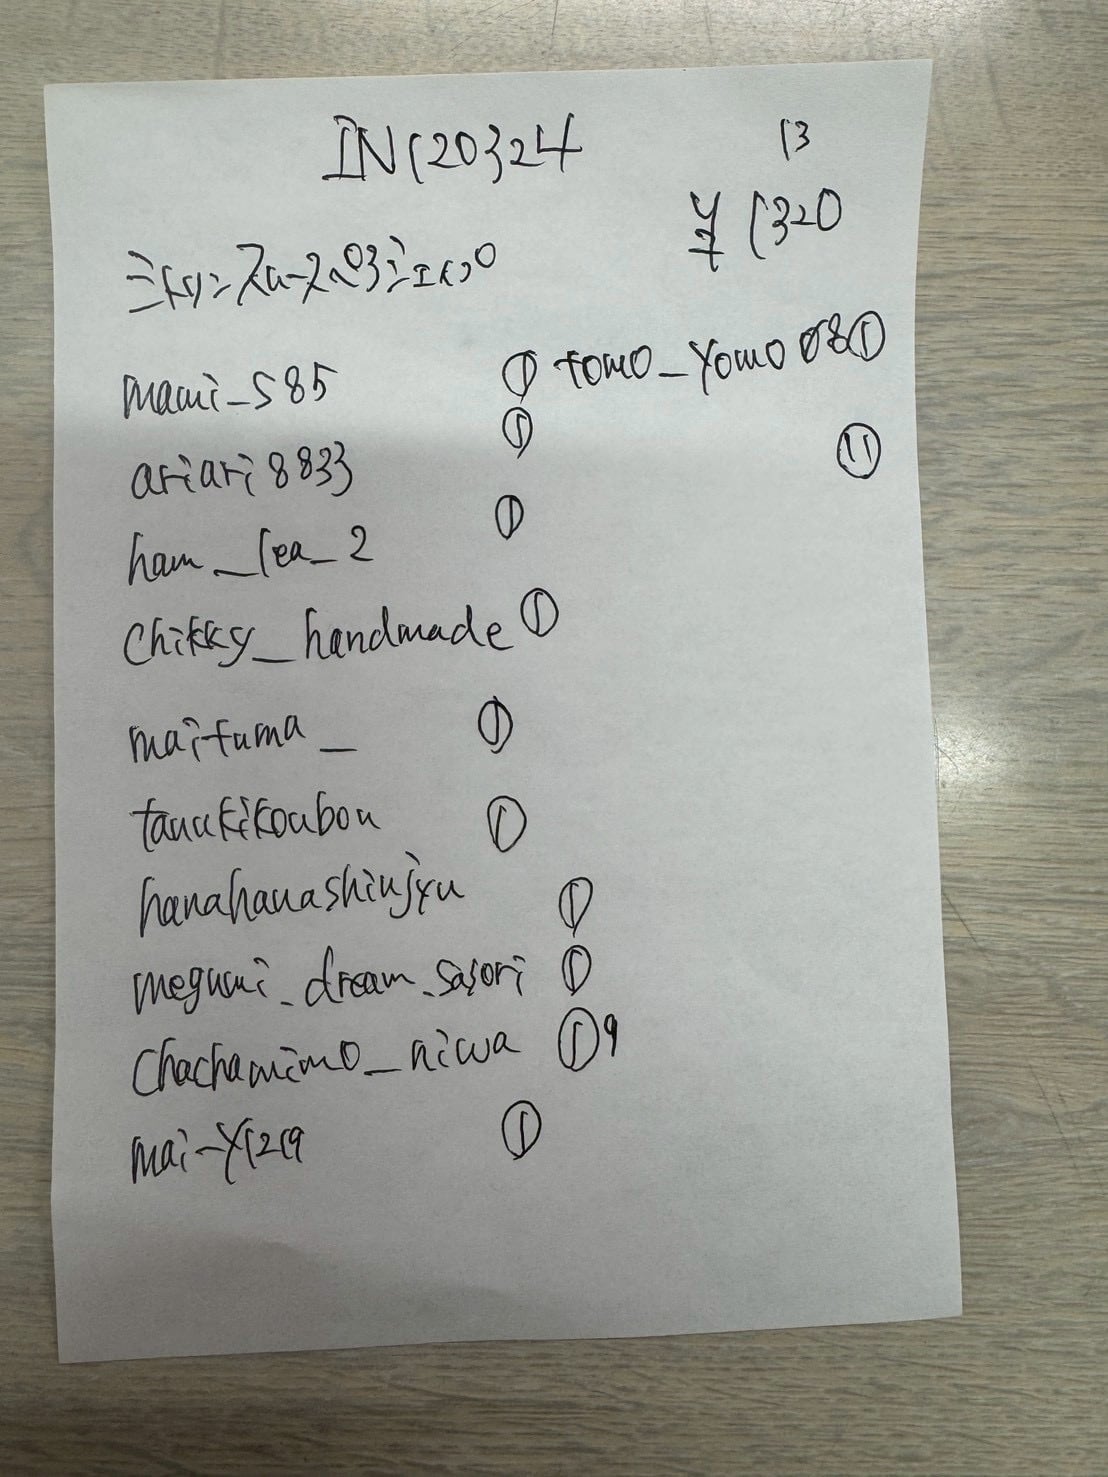 IN120324
13
¥1320
mami_s85 ①
tomo_yomo08 ①
ariari8833 ①
⑪
ham_lea_2 ①
chikky_handmade ①
maituma_ ①
tanukikoubou ①
hanahanashinjyu ①
megumi_dream_sasori ①
chachamimo_niwa ① 9
mai-y1219 ①